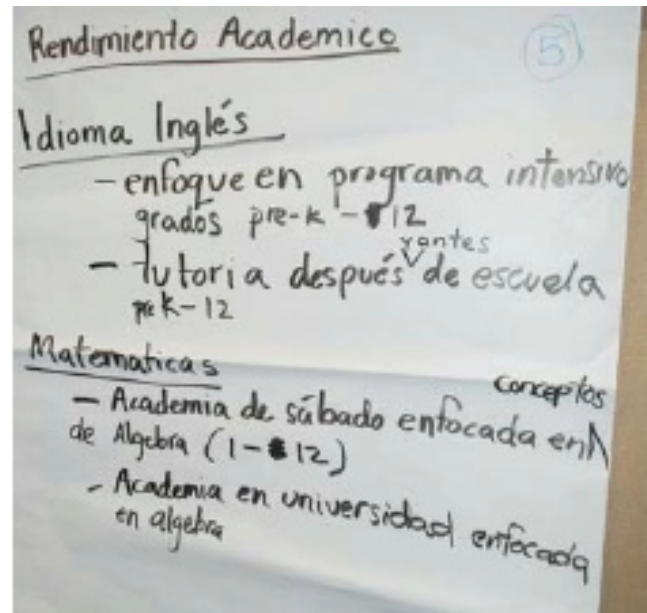 Rendimiento Academico
5
Idioma Inglés
- enfoque en programa intensivo
grados pre-k - 12
yantes
- Tutoria después de escuela
pre k-12
Matematicas
conceptos
- Academia de sábado enfocada en
de Algebra (1-12)
- Academia en universidad enfocada
en algebra